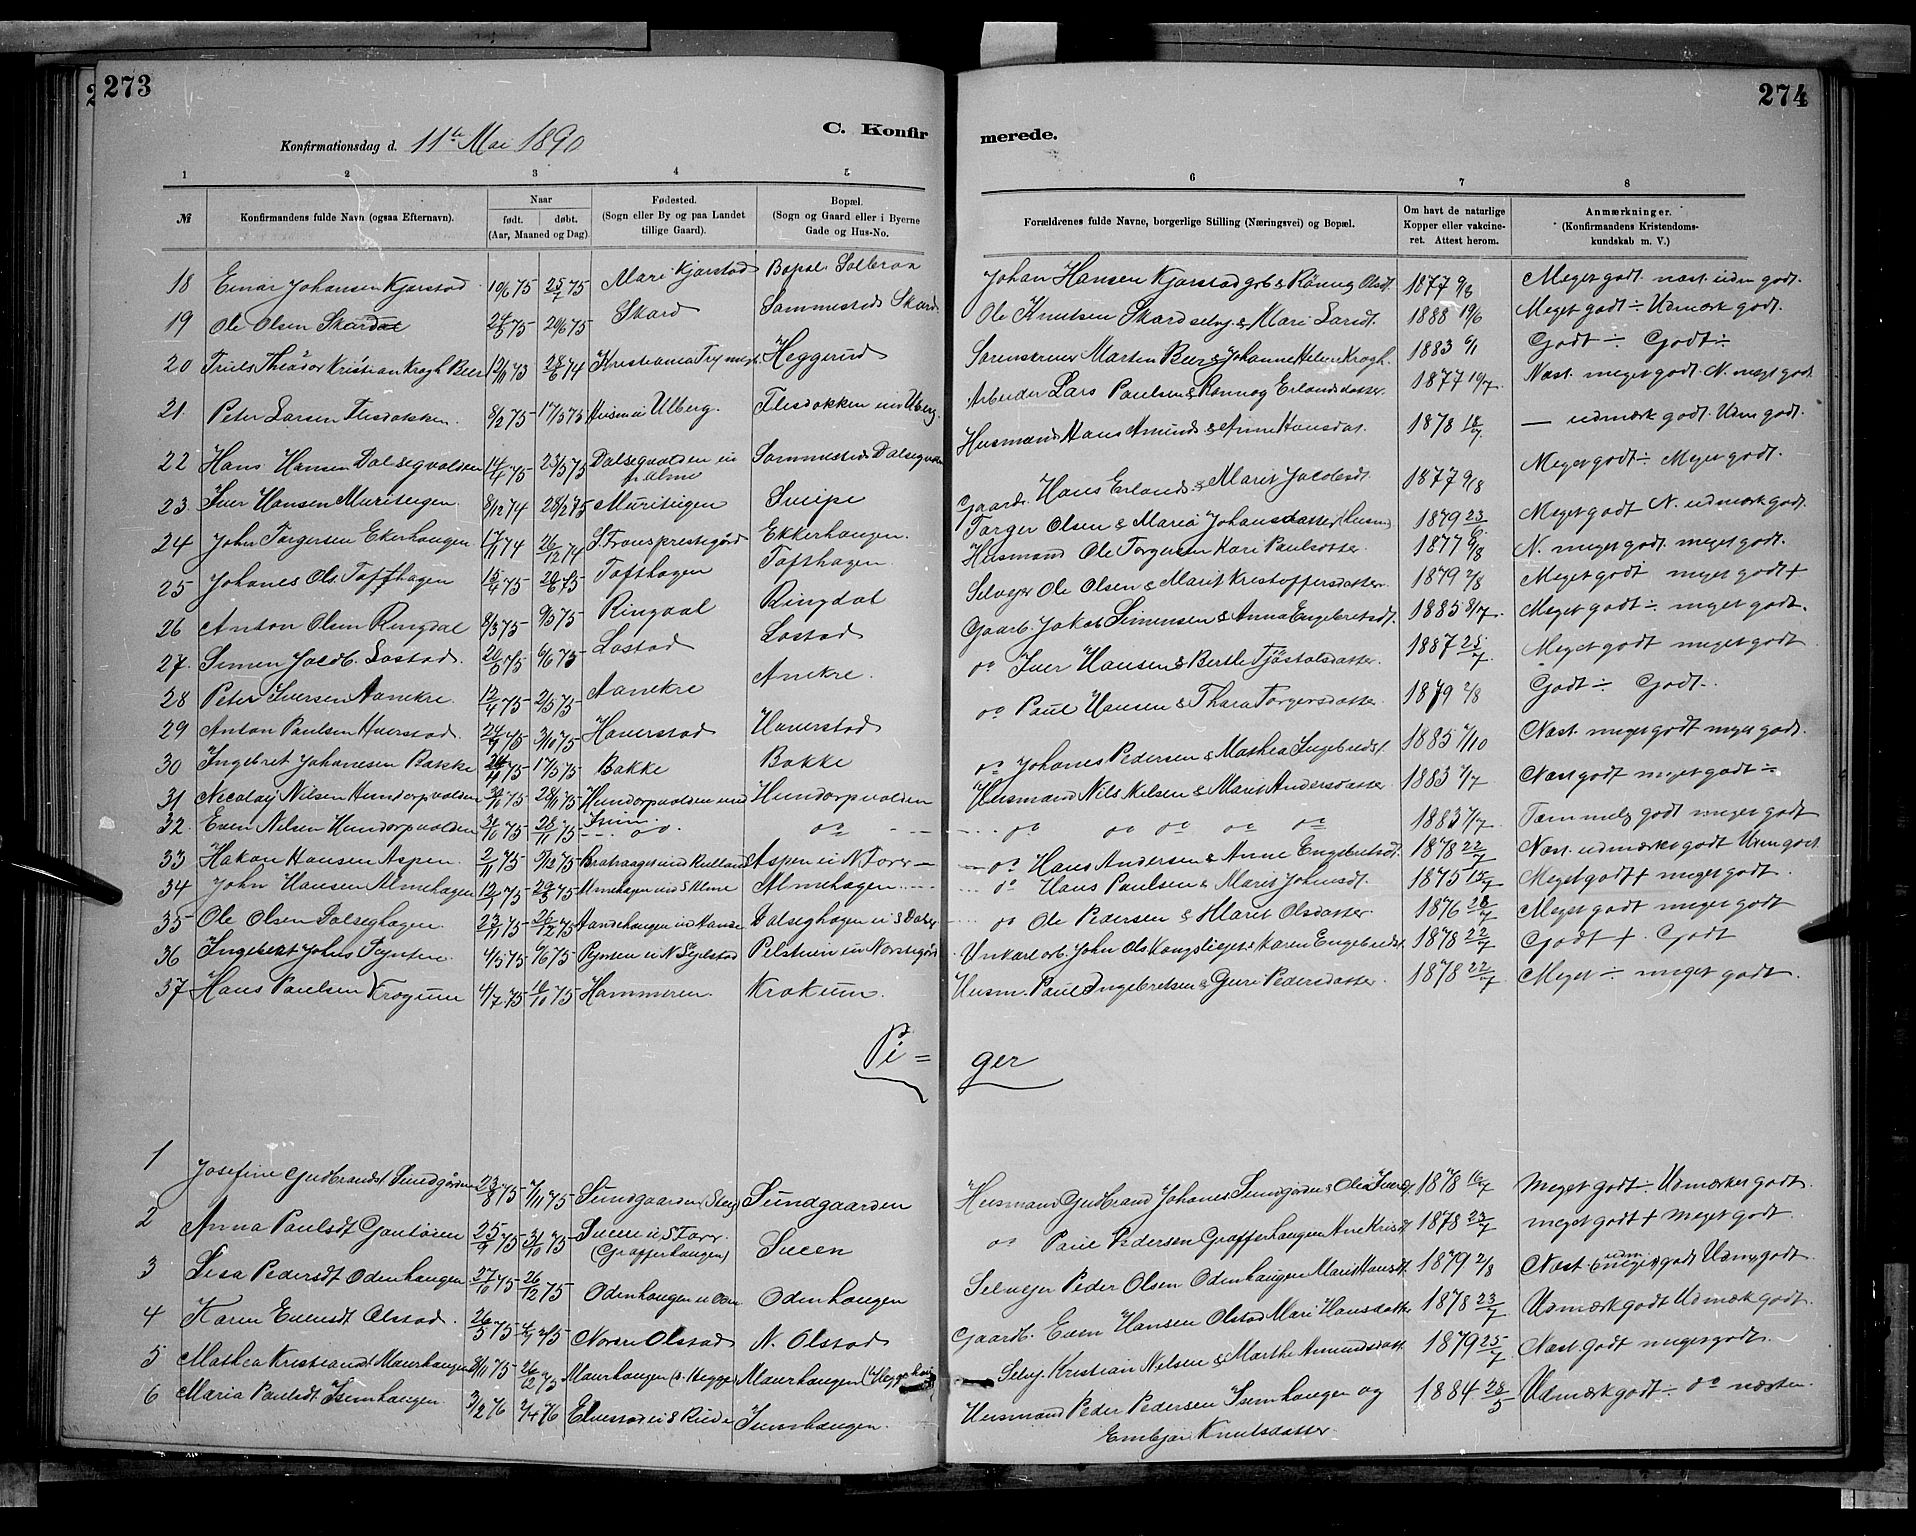 273
274
C. Konfir
merede.
Konfirmationsdag d. 11te Mai 1890
1 2 3 4 5
6 7 8
№ Konfirmandens fulde Navn (ogsaa Efternavn). Naar født. døbt. (Aar, Maaned og Dag). Fødested. (Sogn eller By og paa Landet tillige Gaard). Bopæl. (Sogn og Gaard eller i Byerne Gade og Hus-No.
Forældrenes fulde Navne, borgerlige Stilling (Næringsvei) og Bopæl. Om havt de naturlige Kopper eller vakcineret. Attest herom. Anmærkninger. (Konfirmandens Kristendomskundskab m. V.)
18 Einar Johansen Kjorstad 10/6 75 25/7 75 Kjorstad Johan Hansen Kjorstad 1877 9/8 Meget godt.
19 Ole Olsen Skard 24/5 75 20/6 75 Skard Sammesteds Skard Ole Knutsen Skard selvej. & Mari Larsdt. 1888 19/6 Meget godt ÷ Udmærk godt.
20 Truls Theodor Kristian Kragh Beer 12/11 73 28/6 74 Kristiania Heggerud Sorenskriver Martin Beer & Johanne Helene Kragh. 1883 6/1 Godt ÷ Godt ÷
21. Peter Larsen Flisbakken. 8/2 75 17/5 75 Ulberg. Flisbakken Arbeider Lars Paulsen & Rønnog Erlandsdatter 1877 19/7 Næst. meget godt. N. meget godt
22 Hans Hansen Dalsegvolden 14/4 75 23/5 75 Dalsegvolden Sammesteds Dalsegvolden Husmand Hans Amunds & Anne Hansdat. 1878 18/7 — udmærk godt. Udm godt.
23 Iver Hansen Muriteigen 8/12 74 28/2 75 Muriteigen Sveipe Gaardb. Hans Erlands & Marit Jacobsdt. 1877 9/8 Meget godt ÷ Meget godt.
24 John Torgersen Ekerhaugen 17/11 74 26/12 74 Ekkerhaugen. Torger Olsen & Maria Johansdatter (Husm) 1879 23/6 Meget godt N. udmærk godt.
25 Johanes Ols. Tofthagen 15/4 75 20/6 75 Tofthagen Tofthagen. Husmand Ole Torgersen Kari Paulsdatter. 1877 9/8 N. meget godt. meget godt.
26 Anton Olsen Ringdal 8/3 75 9/5 75 Ringdal Ringdal Selvejer Ole Olsen & Marit Kristoffersdatter 1879 2/8 Meget godt meget godt +
27. Simen Jacob. Lostad. 20/5 75 6/6 75 Lostad Lostad Gaarb. Jakob Simensen & Anna Engebretsdt. 1885 8/7 Meget godt ÷ meget godt.
28 Peter Iversen Aanekre. 12/4 75 2/5 75 Aanekre Anekre. do Iver Hansen & Berthe Tjøstolsdatter. 1887 25/7 Meget godt meget godt
29 Anton Paulsen Huerstad. 24/9 75 3/10 75 Hauerstad Hauerstad do Paul Hansen & Thora Torgersdatter 1879 2/8 Godt ÷ Godt.
30 Ingebret Johanesen Bakke 24/4 75 17/5 75 Bakke Bakke do Johanes Pedersen & Mathea Ingebredsd. 1885 4/10 Næst. meget godt meget godt.
31 Nicolaij Nilsen Hundorpvolden 31/10 75 28/11 75 Hundorpvolden Hundorpvolden Husmand Nils Nilsen & Marit Andersdatter 1883 7/7 Næst godt meget godt ÷
32. Even Nilsen Hundorpvolden 31/10 75 28/11 75 do do do do do do do 1883 7/7 Temmelig godt meget godt
33 Hakan Hansen Aspen. 2/11 75 5/12 75 Aspen do Hans Andersen & Anne Engebretsdt. 1878 22/7 Næst. udmærket godt Udm godt.
34 John Hansen Almehagen 12/7 75 29/8 75 Almehagen Almehagen do Hans Paulsen & Marit Johnsdt. 1875 15/7 Meget godt + meget godt.
35 Ole Olsen Dalseghagen. 23/11 75 26/12 75 Dalseghagen do Ole Pedersen & Marit Olsdatter. 1876 28/7 Meget godt meget godt
36 Ingebret Johns. 4/5 75 6/6 75 1878 22/7 Godt + Godt
37 Hans Paulsen Krogum 4/7 75 10/10 75 Hammeren. Krokum. Husm. Paul Ingebretsen & Guri Pedersdatter. 1878 22/7 Meget ÷ meget godt.
Pi= ger
1 Josefine Gudbrandsd Sundgården 23/8 75 7/11 75 Sundgaarden Sundgaarden Husmand Gudbrand Johanes Sundgården & 1878 16/7 Meget godt ÷ Udmærket godt.
2 Anna Paulsdt 25/9 75 31/10 75 Sueen (Grafferhaugen) Sueen do Paul Pedersen Grafferhaugen 1878 23/7 meget godt + Meget godt
3 Lisa Pedersdt Odenhaugen 27/10 75 26/12 75 Odenhaugen Odenhaugen Selvejer Peder Olsen Odenhaugen Marit Hansdt. 1879 2/8 Næst udm meget godt Udm godt
4 Karen Evensdt Olstad. 26/5 75 4/7 75 Nordre Olstad N. Olstad Gaardb. Even Hansen Olstad Mari Hansdatter 1878 23/7 Udmærk godt Udmærk godt.
5 Mathea Kristiansd. Maurhaugen 8/11 75 26/12 75 Maurhaugen Maurhaugen Selvej. Kristian Nilsen & Marthe Amundsdatt 1879 25/7 Næst. godt meget godt.
6 Maria Paulsdt. Isumhaugen 3/2 76 2/4 76 Isumhaugen. Husmand Peder Pedersen Isumhaugen og 1884 28/5 Udmærk godt ÷ do næsten
Embjør Knutsdatter.